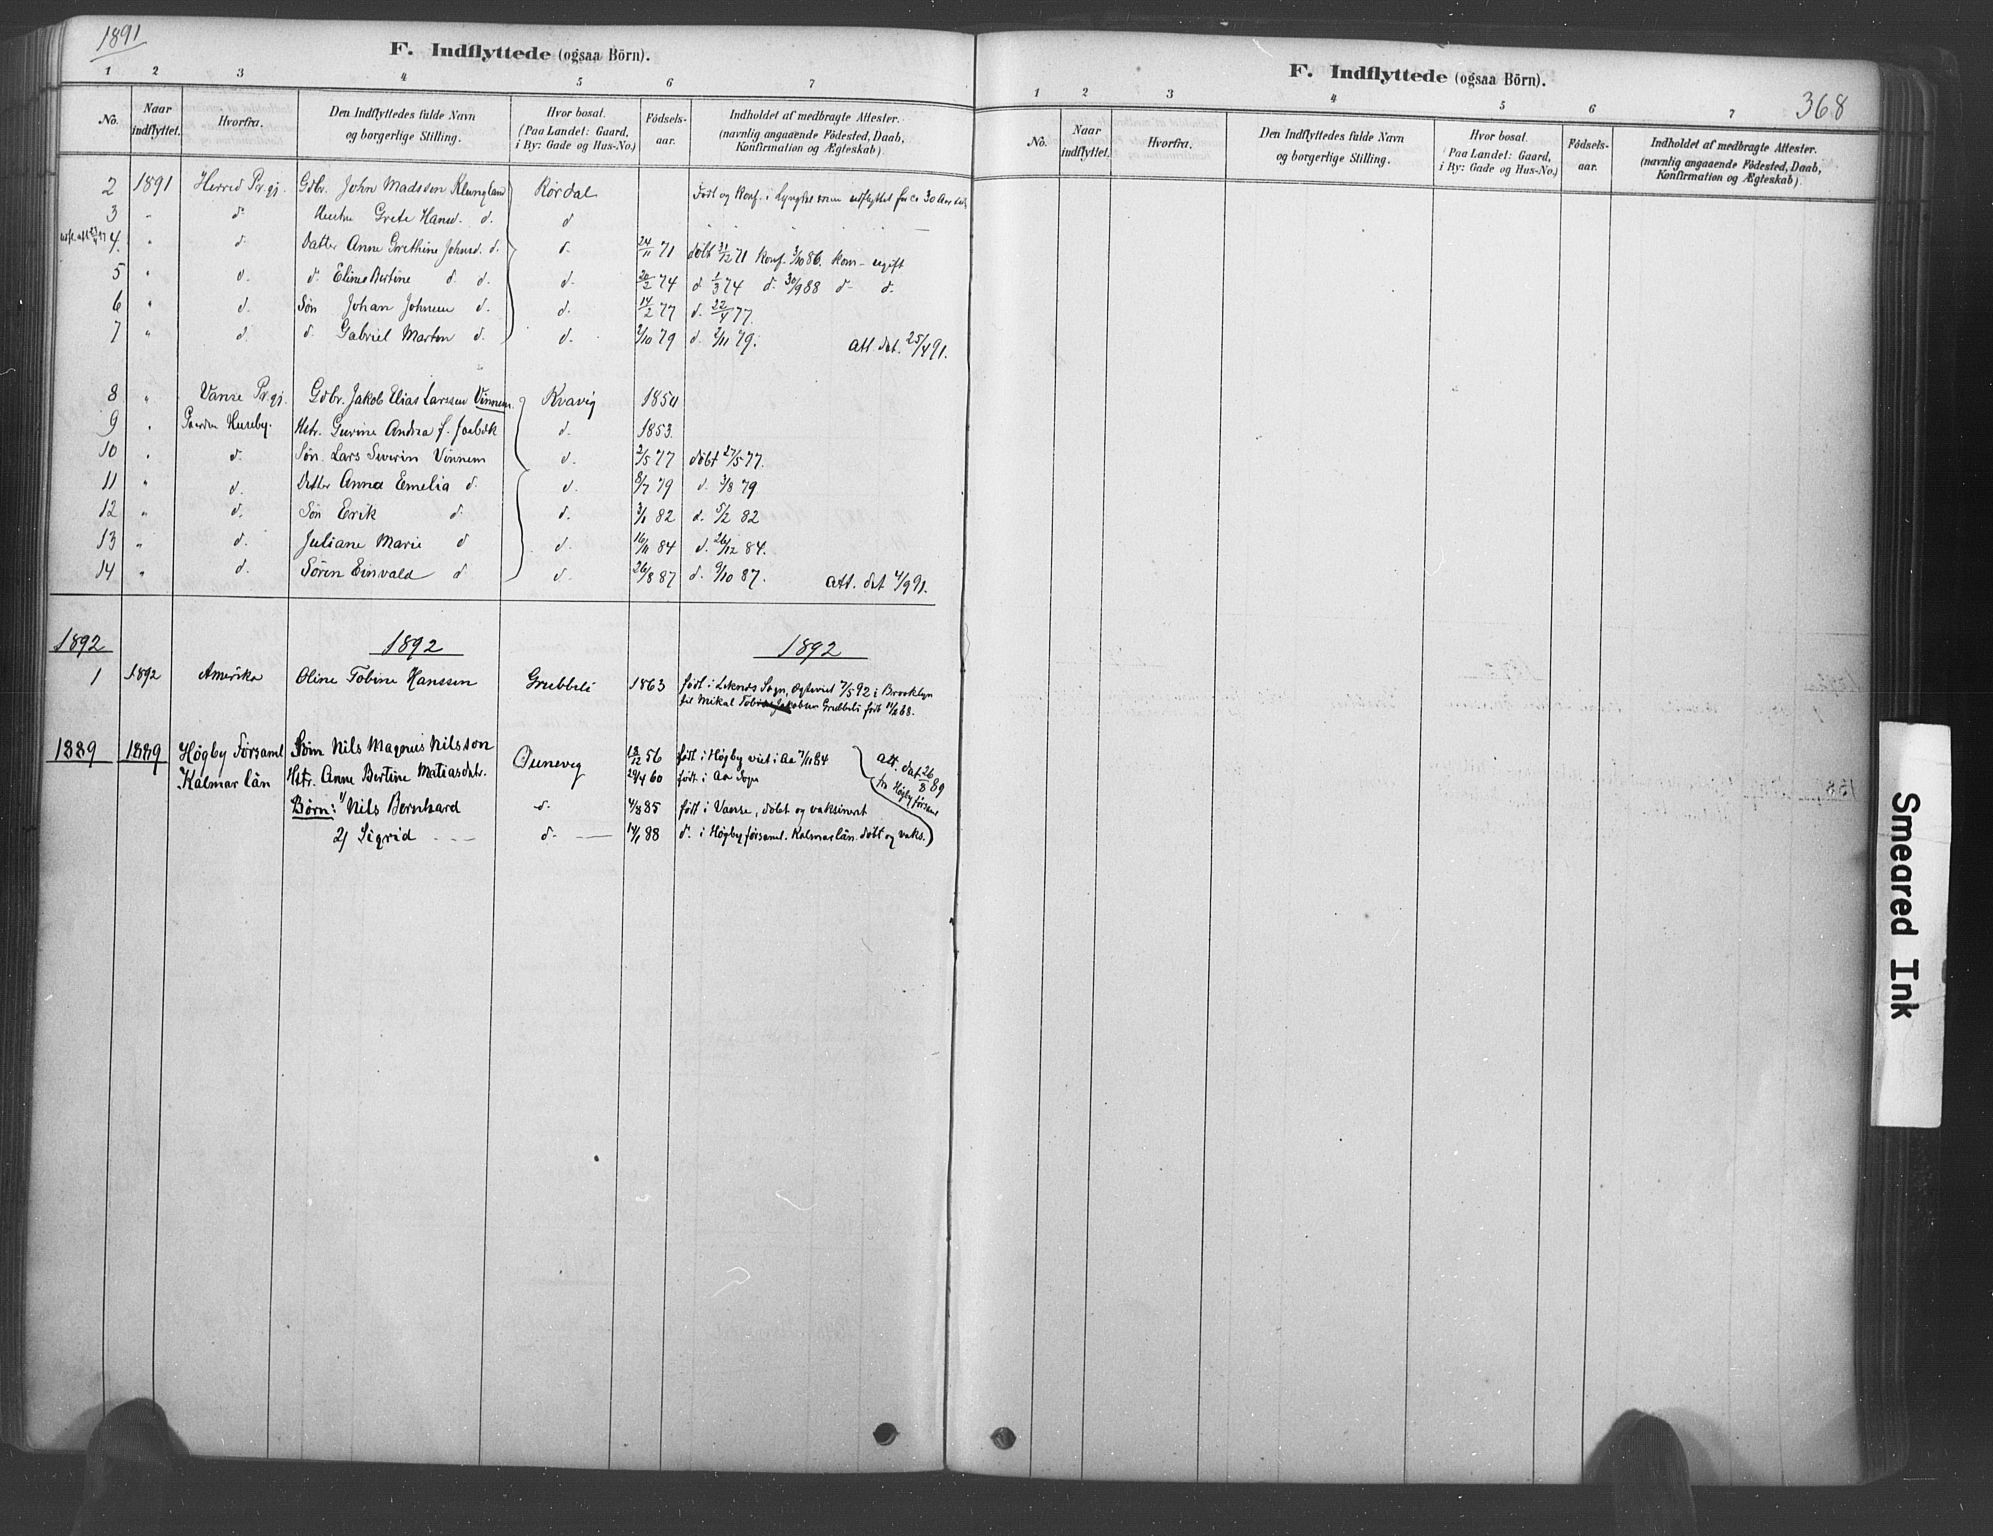 1891
F. Indflyttede (ogsaa Börn).
1 2 3 4 5 6 7
No. Naar indflyttet. Hvorfra. Den Indflyttedes fulde Navn og borgerlige Stilling. Hvor bosat. (Paa Landet: Gaard, i By: Gade og Hus-No.) Födsels-aar. Indholdet af medbragte Attester. (navnlig angaaende Födested, Daab, Konfirmation og Ægteskab).
2 1891 Herred Pr.gj. Gdbr. John Madssen Rørdal Født og Konf. i Lyngdal men udflyttet for ca 30 Aar
3 " d. Hustru Grete Hansd. d. d
4 " d. Datter Anne Grethine Johnsd. d. d. 24/11 71 døbt 31/12 71 Konf. 3/10 86. Kom- ugift
5 " d. d. Eline Bertine d. d. d. 20/2 74 d 1/3 74 d. 30/9 88 d- d.
6 " d. Søn Johan Johnsen d. d. 14/2 77 d. 22/4 77.
7 " d d. Gabriel Marton d. d. 2/10 79 d. 2/11 79. Att. dat. 25/4 91.
8 " Vanse Pr.gj. Gdbr. Jakob Elias Larssen Vinnem Kvavig 1850
9 " Gaarden Huseby. Hstr. Gurine Andrea f. d. 1853.
10 " d. Søn Lars Severin Vinnem d. 2/5 77 døbt 27/5 77.
11 " d. Datter Anna Emelia d. d. 8/7 79 d. 3/8 79
12 " d. Søn Erik d. d. 3/1 82 d. 5/2 82
13 " d. Juliane Marie d d. 16/11 84 d. 26/12 84.
14 " d. Søren Einvald d d. 26/8 87 d. 9/10 87. Att. dat 4/9 91.
1892 1892 1892
1 1892 Amerika Oline Tobine Hanssen Grubbeli 1863 født i Liknes Sogn, Ægteviet 7/5 92 i Brooklyn
til Mikal Jakobsen Grubbeli født 11/2 68.
1889 1889 Högby Församl Nils Magnus Nilsson Ounevig 18/12 56 født i Högby viet i Aa 7/11 84 Att. dat 26/8 89
Kalmar län Hstr. Anne Bertine Matiasdtr. 29/4 60 født i Aa Sogn fra Högby førsaml
Børn: 1/ Nils Bernhard d. 4/8 85 født i Vanse, døbt og vaksineret
2/ Sigrid d. 14/1 88 d. i Högby førsaml. Kalmar län. døbt og vaks.
F. Indflyttede (ogsaa Börn).
368
1 2 3 4 5 6 7
No. Naar indflyttet. Hvorfra. Den Indflyttedes fulde Navn og borgerlige Stilling. Hvor bosat. (Paa Landet: Gaard, i By: Gade og Hus-No.) Födsels-aar. Indholdet af medbragte Attester. (navnlig angaaende Födested, Daab, Konfirmation og Ægteskab).
Smeared Ink